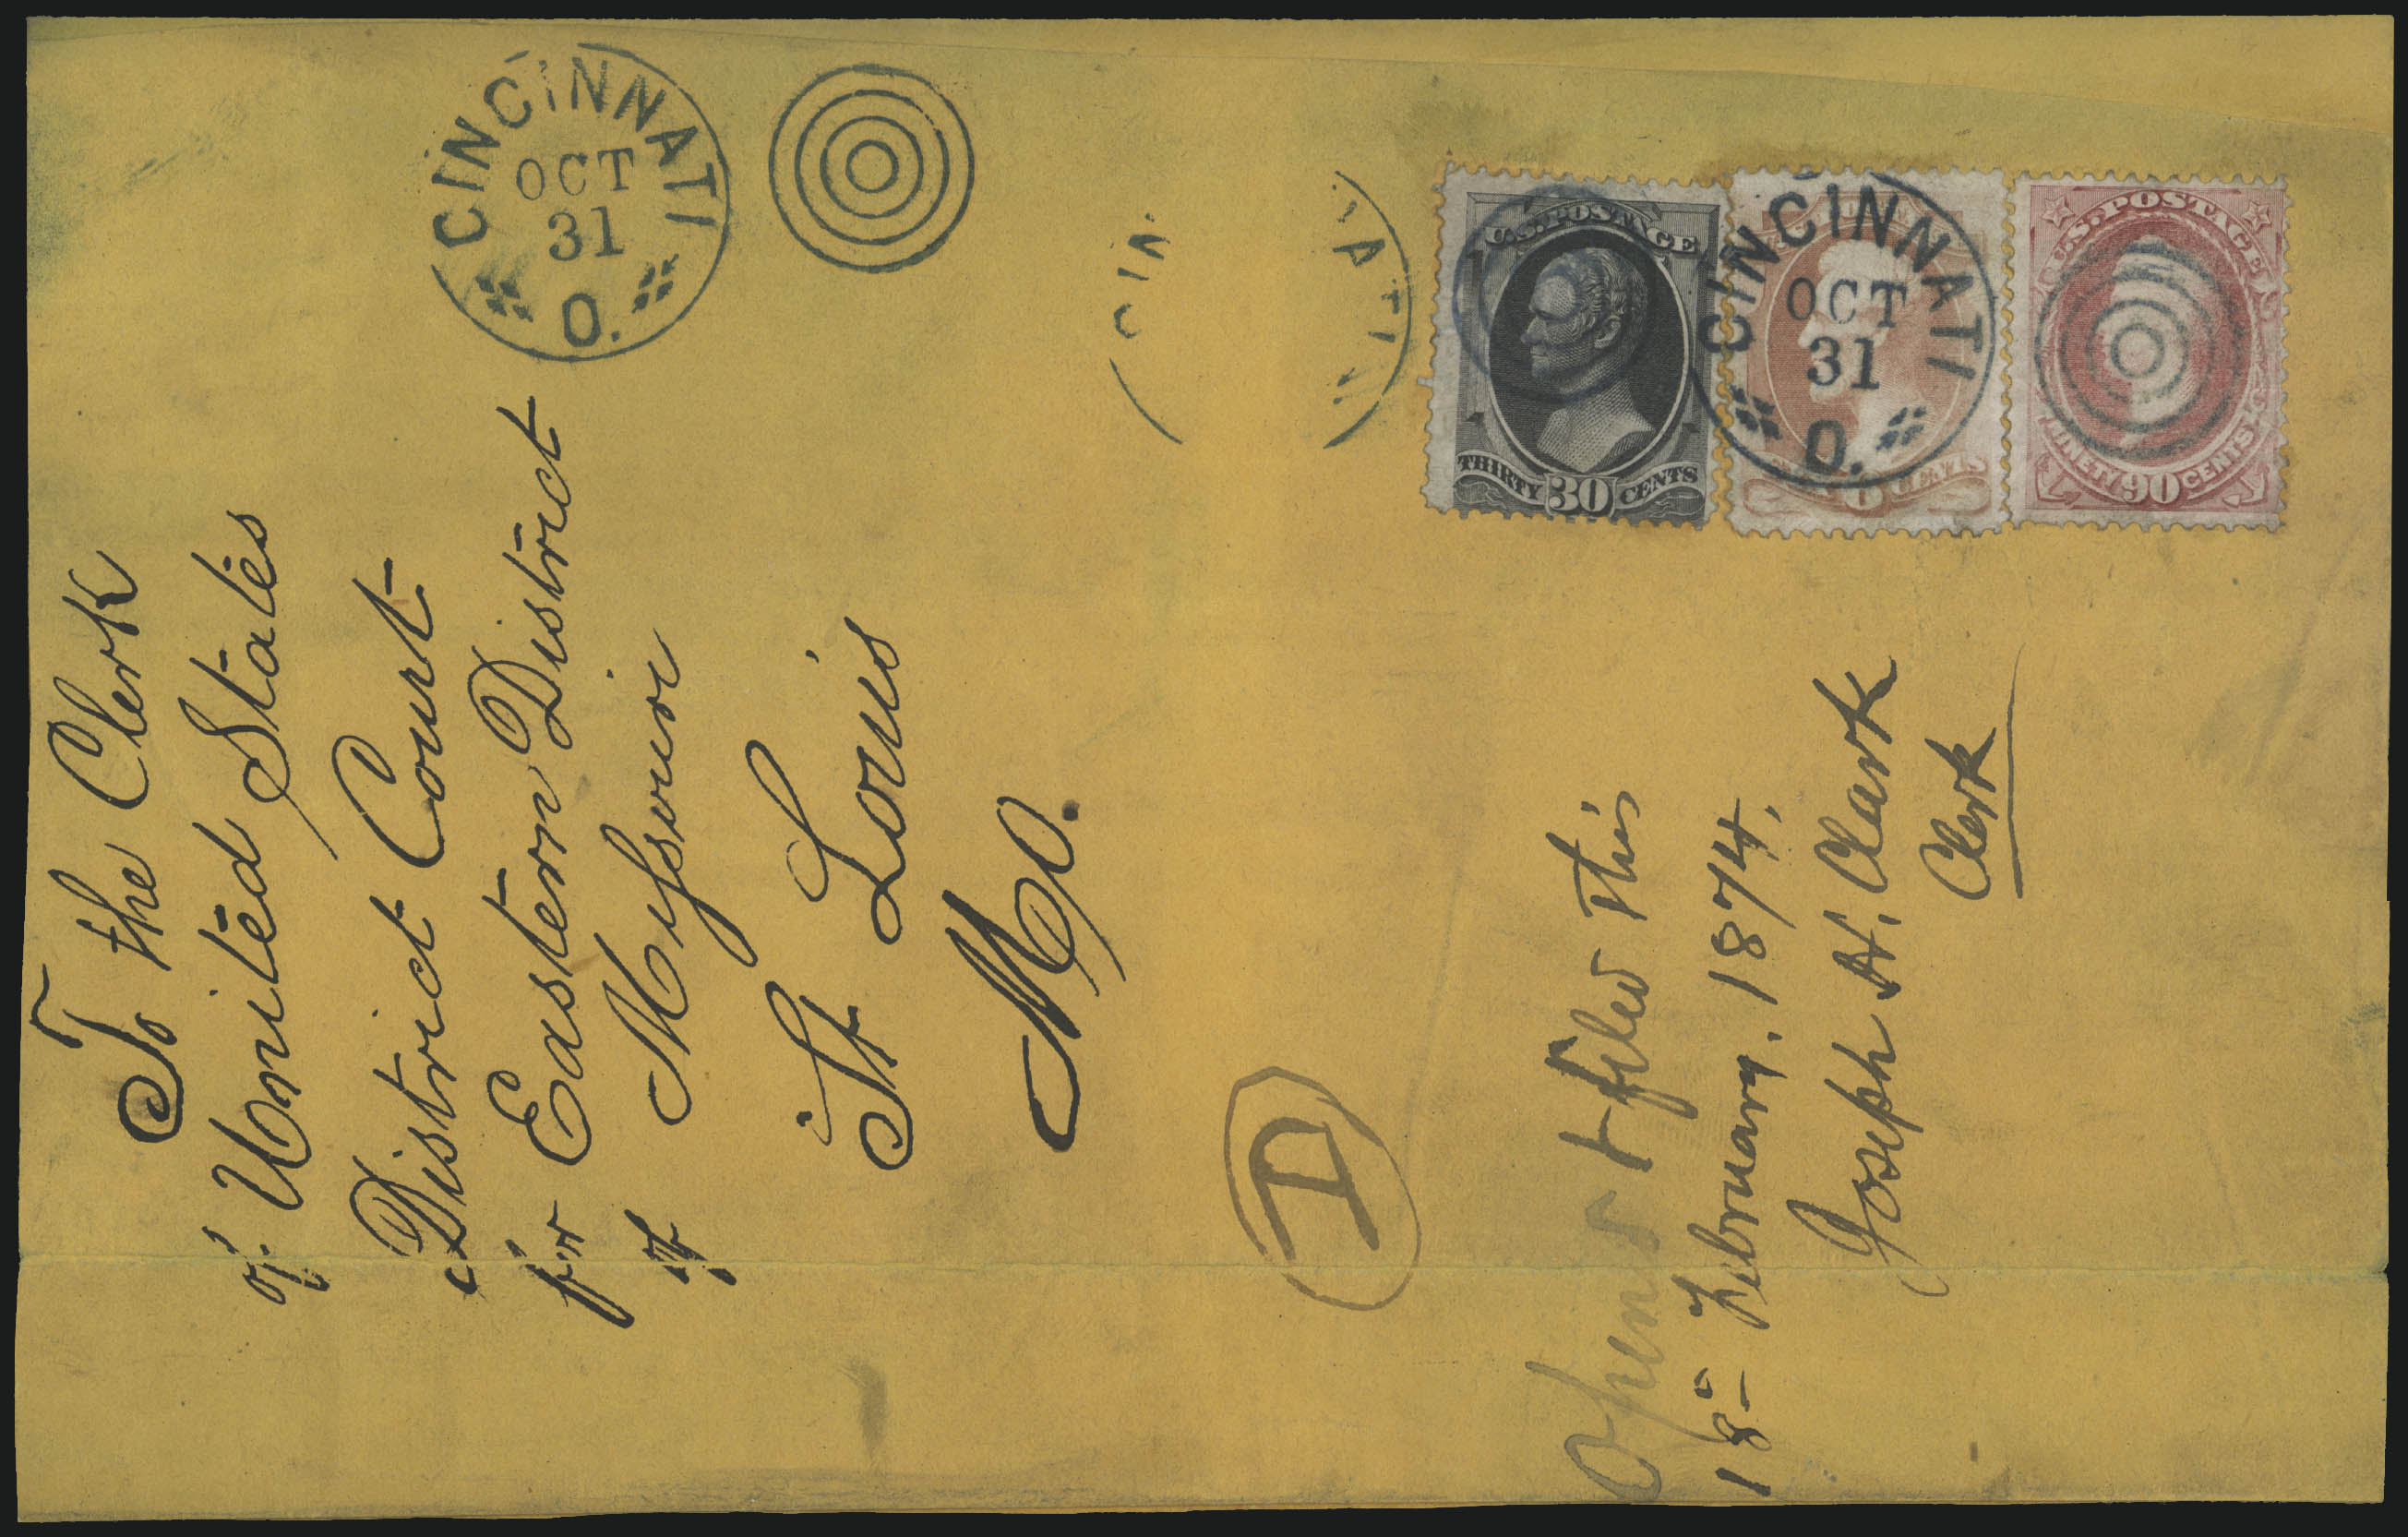 To the Clerk
of United States
District Court
for Eastern District
of Missouri
St Louis
Mo.
CINCINNATI
OCT
31
O.
CIN
ATI
U.S. POSTAGE
THIRTY 30 CENTS
CINCINNATI
OCT
31
O.
6 CENTS
U.S. POSTAGE
NINETY 90 CENTS
D
Opened & filed this
18 February. 1874.
Joseph H. Clark
Clerk